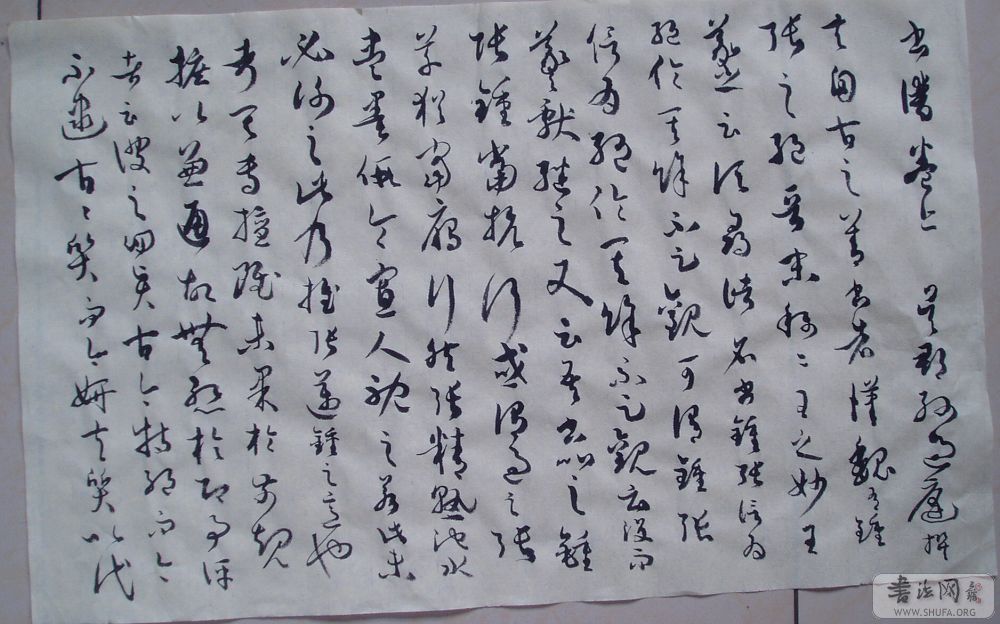 書譜卷上 吳郡孫過庭撰
夫自古之善書者漢魏有鍾
張之絕晉末稱二王之妙王
羲之云頃尋諸名書鍾張信為
絕倫其餘不足觀可謂鍾張
信為絕倫其餘不足觀云沒而
羲獻繼之又云吾書比之鍾
張鍾當抗行或謂過之張
草猶當雁行然張精熟池水
盡墨假令寡人耽之若此未
必謝之此乃推張邁鍾之意也
考其專擅雖未果於前規
摭以兼通故無慚於即事評
者云彼之四賢古今特絕而今
不逮古〻質而今妍夫質以代
書法网
WWW.SHUFA.ORG